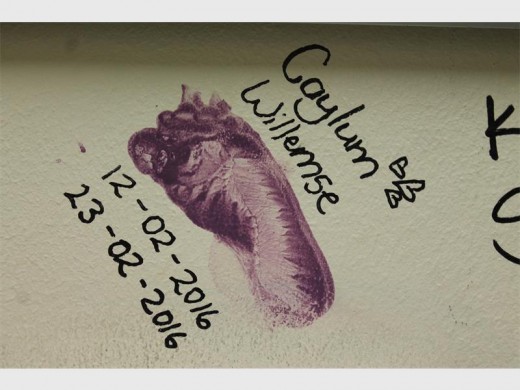 Caylum
Willemse
12-02-2016
23-02-2016
K